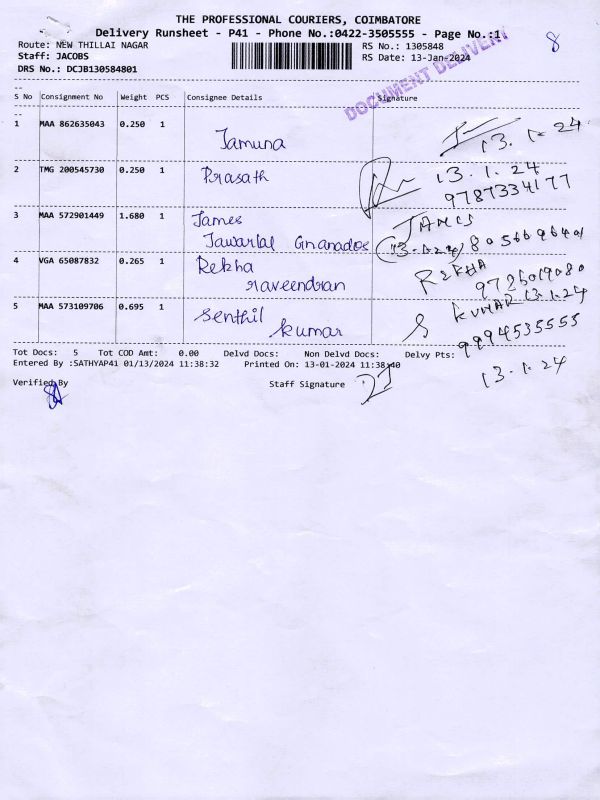 THE PROFESSIONAL COURIERS, COIMBATORE
Delivery Runsheet - P41 - Phone No.:0422-3505555 - Page No.:1
Route: NEW THILLAI NAGAR RS No.: 1305848 8
Staff: JACOBS RS Date: 13-Jan-2024
DRS No.: DCJB130584801
DOCUMENT DELIVERY
S No Consignment No Weight PCS Consignee Details Signature
1 MAA 862635043 0.250 1 Jamuna 13.1.24
2 TMG 200545730 0.250 1 Prasath 13.1.24
9787334177
3 MAA 572901449 1.680 1 James JAMES
Jawarlal Gnanados 13-1-24
4 VGA 65087832 0.265 1 Rekha REKHA
raveendran
5 MAA 573109706 0.695 1 Senthil KUMAR 13.1.24
kumar 9994535555
Tot Docs: 5 Tot COD Amt: 0.00 Delvd Docs: Non Delvd Docs: Delvy Pts:
Entered By :SATHYAP41 01/13/2024 11:38:32 Printed On: 13-01-2024 11:38:40
13.1.24
Verified By Staff Signature